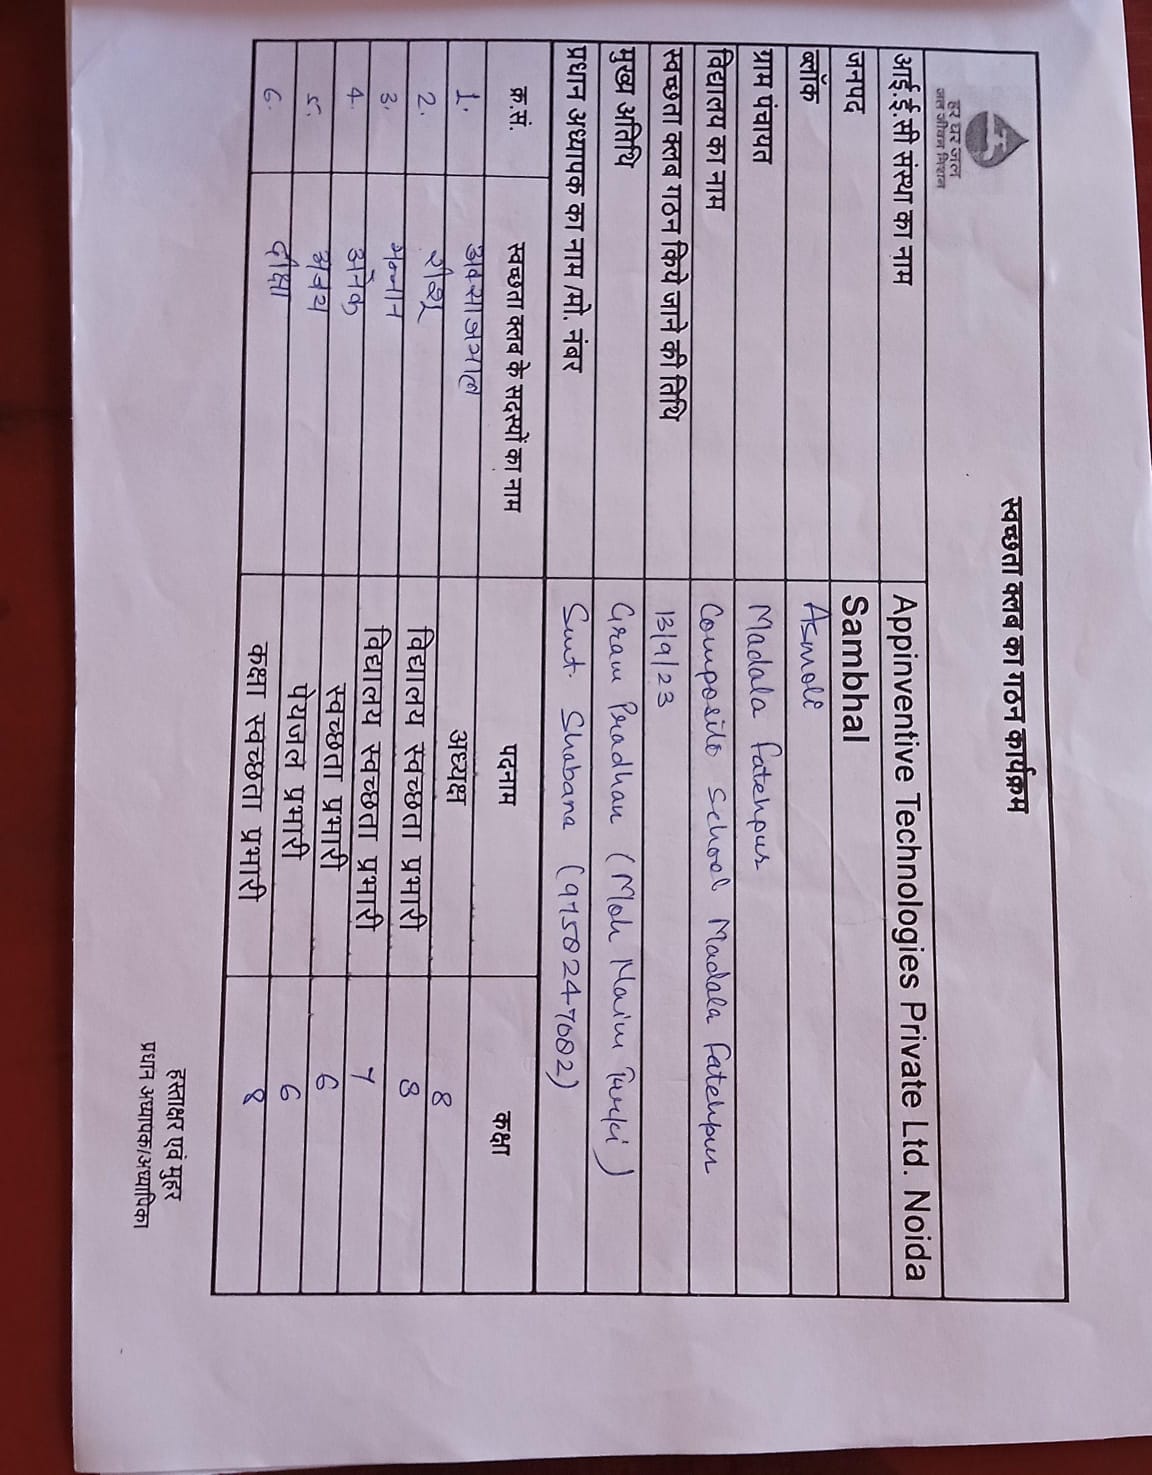 हर घर जल
जल जीवन मिशन
स्वच्छता क्लब का गठन कार्यक्रम
आई.ई.सी संस्था का नाम Appinventive Technologies Private Ltd. Noida
जनपद Sambhal
ब्लॉक Asmoli
ग्राम पंचायत Madala Fatehpur
विद्यालय का नाम Composite School Madala Fatehpur
स्वच्छता क्लब गठन किये जाने की तिथि 13/9/23
मुख्य अतिथि Gram Pradhan (Moh Naim Turki)
प्रधान अध्यापक का नाम /मो. नंबर Smt. Shabana (9758247682)
क्र.सं. स्वच्छता क्लब के सदस्यों का नाम पदनाम कक्षा
1. अध्यक्ष 8
2. विद्यालय स्वच्छता प्रभारी 8
3. मन्नान विद्यालय स्वच्छता प्रभारी 7
4. स्वच्छता प्रभारी 6
5. पेयजल प्रभारी 6
6. दीक्षा कक्षा स्वच्छता प्रभारी 8
हस्ताक्षर एवं मुहर
प्रधान अध्यापक/अध्यापिका